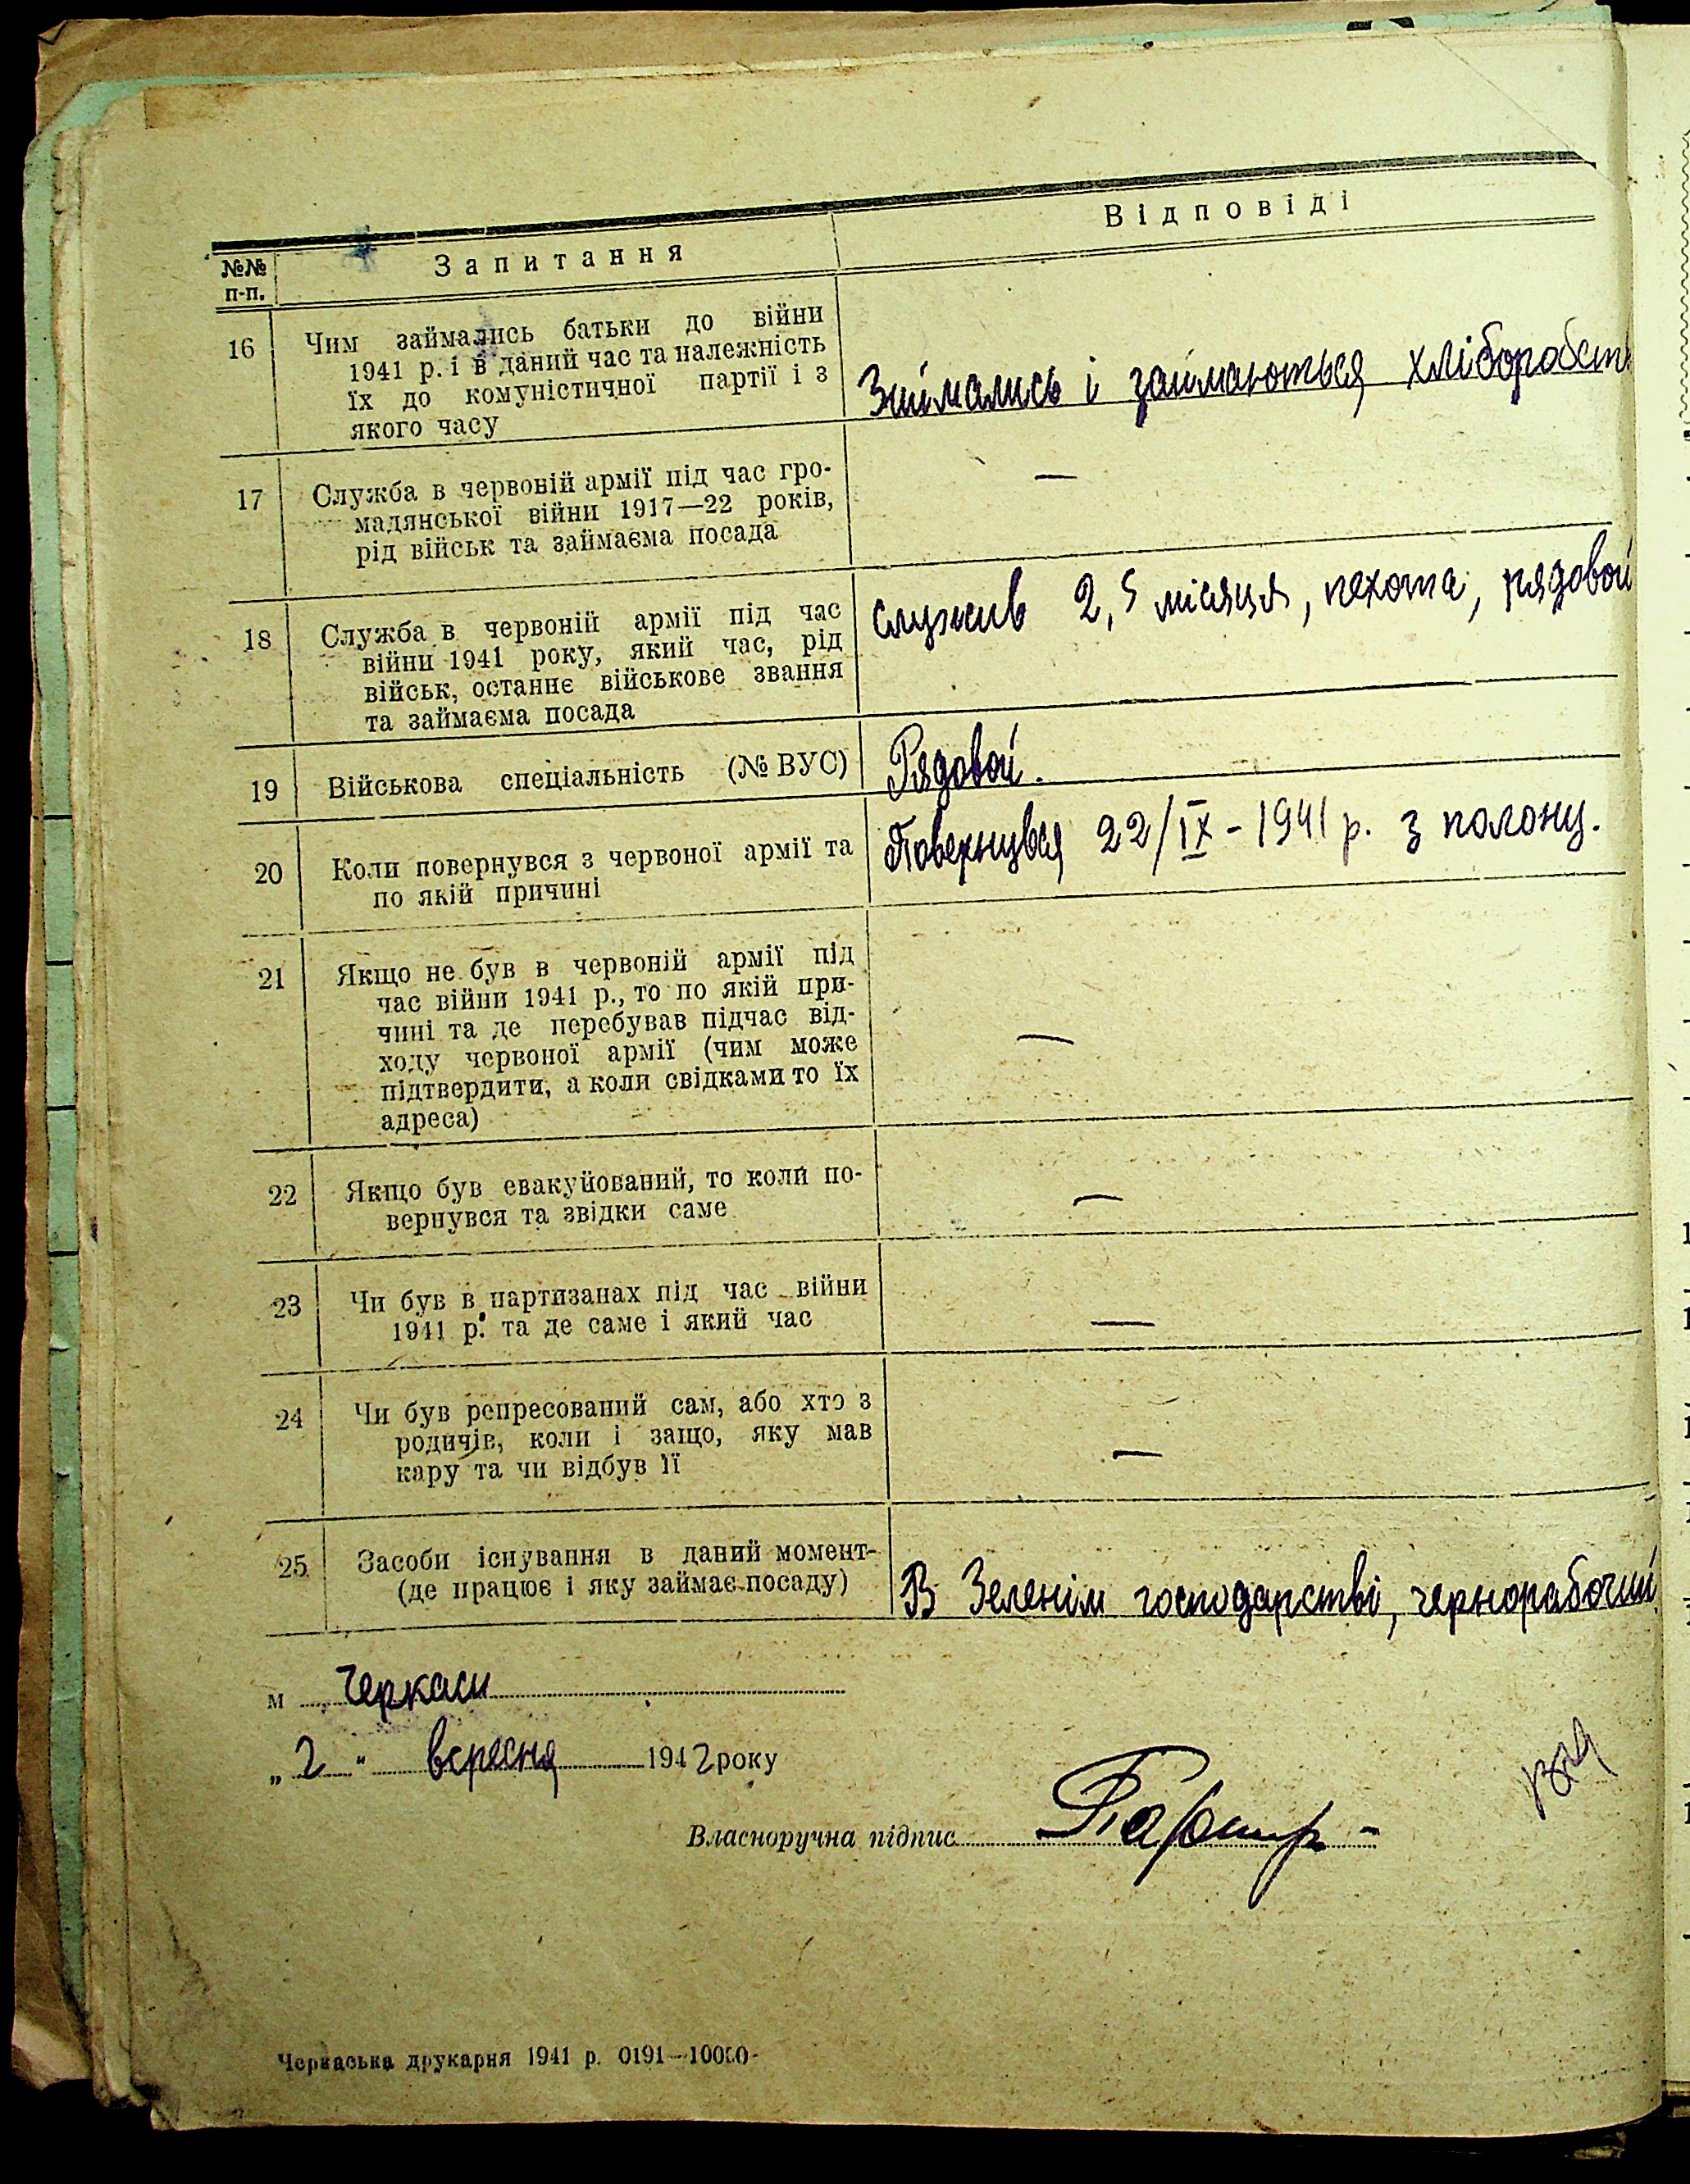 Відповіді
№№
п-п.
Запитання
16 Чим займались батьки до війни
1941 р. і в даний час та належність
їх до комуністичної партії і з
якого часу
Займались і займаються хліборобст
17 Служба в червоній армії під час гро-
мадянської війни 1917—22 років,
рід військ та займаєма посада
—
18 Служба в червоній армії під час
війни 1941 року, який час, рід
військ, останнє військове звання
та займаєма посада
служив 2,5 місяця, пехота, рядовой
19 Військова спеціальність (№ ВУС)
Рядовой.
20 Коли повернувся з червоної армії та
по якій причині
Повернувся 22/IX - 1941 р. з полону.
21 Якщо не був в червоній армії під
час війни 1941 р., то по якій при-
чині та де перебував підчас від-
ходу червоної армії (чим може
підтвердити, а коли свідками то їх
адреса)
—
22 Якщо був евакуйований, то коли по-
вернувся та звідки саме
—
23 Чи був в партизанах під час війни
1941 р. та де саме і який час
—
24 Чи був репресований сам, або хто з
родичів, коли і защо, яку мав
кару та чи відбув її
—
25 Засоби існування в даний момент-
(де працює і яку займає посаду)
В Зеленім господарстві, чернорабочий
м Черкаси
„2" вересня 1942 року
Власноручна підпис
Черкаська друкарня 1941 р. 0191—10000-